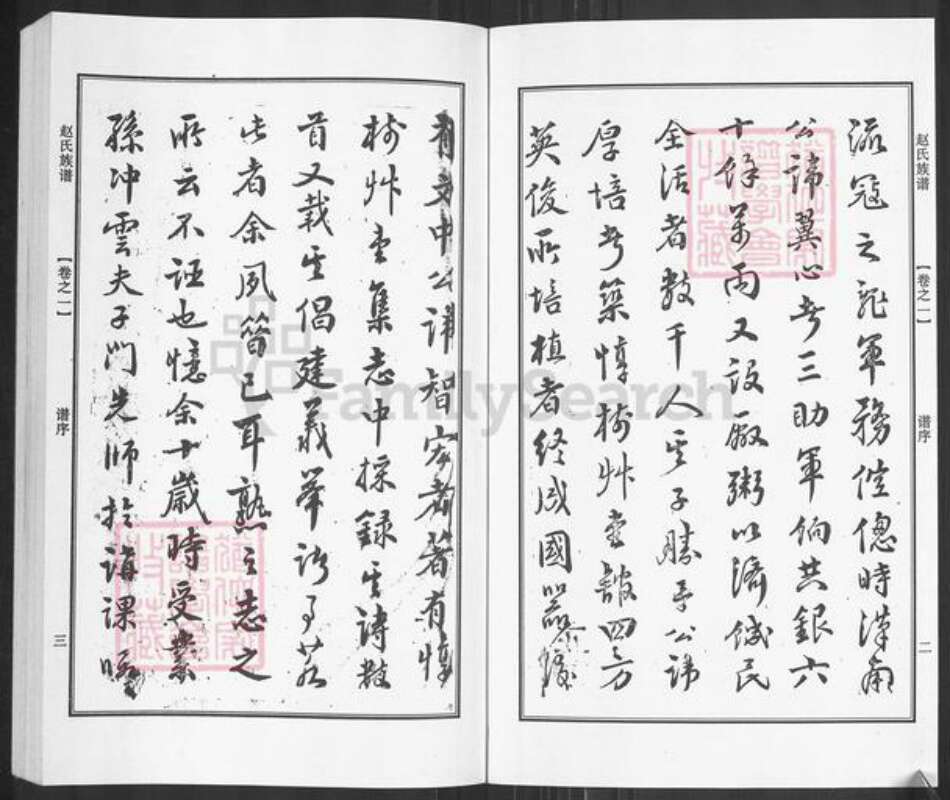 赵氏族谱
【卷之一】
谱序
二
流冠之亂軍務倥傯時漢南
公諱翼心者三助軍餉共銀六
十餘萬兩又設廠粥以濟饑民
全活者數千人其子勝千公諱
厚培者築惇樹艸堂館四方
英俊所培植者終成國器
赵氏族谱
【卷之一】
谱序
三
有文中公諱智宏者著有惇
樹艸堂集志中採錄其詩數
首又載其倡建義舉許多若
此者余夙皆已耳熟之志之
所云不誣也憶余十歲時受業
孫冲雲夫子門先師於講課
FamilySearch